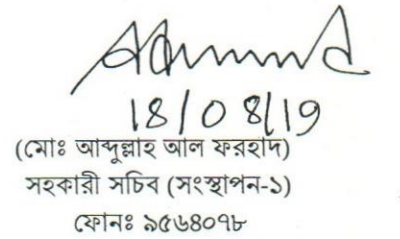 18/08/19
(মোঃ আব্দুল্লাহ আল ফরহাদ)
সহকারী সচিব (সংস্থাপন-১)
ফোনঃ ৯৫৬৪০৭৮